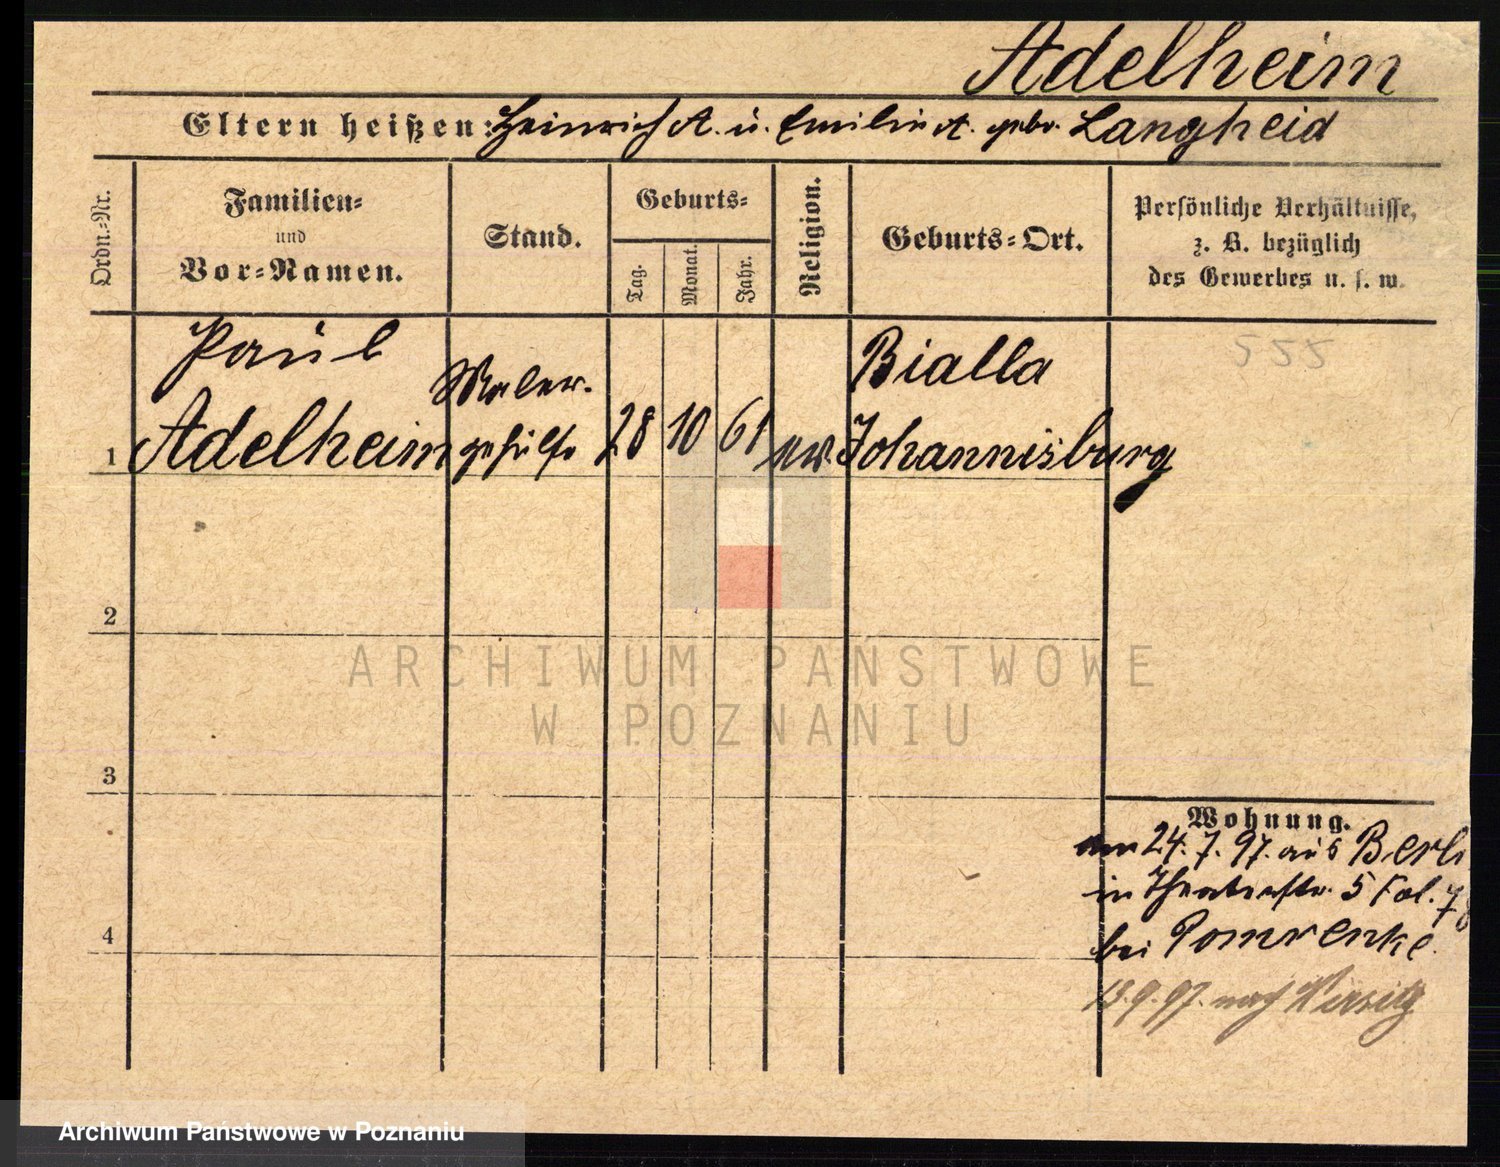 Adelheim
Eltern heißen: Heinrich A. u. Emilie A. geb. Langheid
Ordn.-Nr.
Familien-
und
Vor-Namen.
Stand.
Geburts-
Tag.
Monat.
Jahr.
Religion.
Geburts-Ort.
Persönliche Verhältnisse,
z. B. bezüglich
des Gewerbes u. s. w.
555
Paul
Adelheim
Maler-
gehülfe
28
10
61
ev.
Bialla
Johannisburg
1
2
3
4
Wohnung.
am 24. 7. 97. aus Berl
in Theaterstr. 5 Fol. 78
bei Pomrenke.
13.9.97. nach
ARCHIWUM PAŃSTWOWE
W POZNANIU
Archiwum Państwowe w Poznaniu